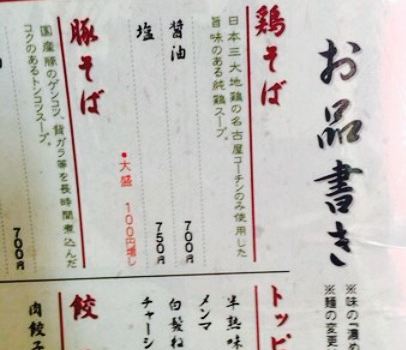 お品書き
※味の「濃め
※麺の変更
鶏そば
日本三大地鶏の名古屋コーチンのみ使用した
旨味のある純鶏スープ。
醤油 700円
塩 750円
●大盛 100円増し
豚そば
国産豚のゲンコツ、背ガラ等を長時間煮込んだ
コクのあるトンコツスープ。
700円
トッピ
半熟味
メンマ
白髪ね
チャーシ
餃
肉餃子